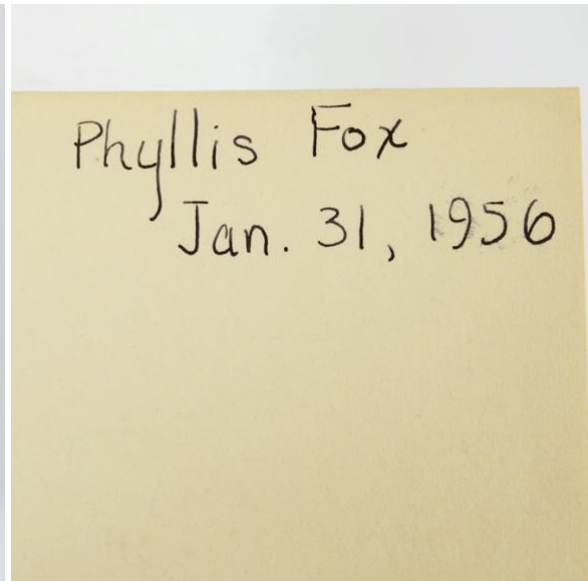 Phyllis Fox
Jan. 31, 1956